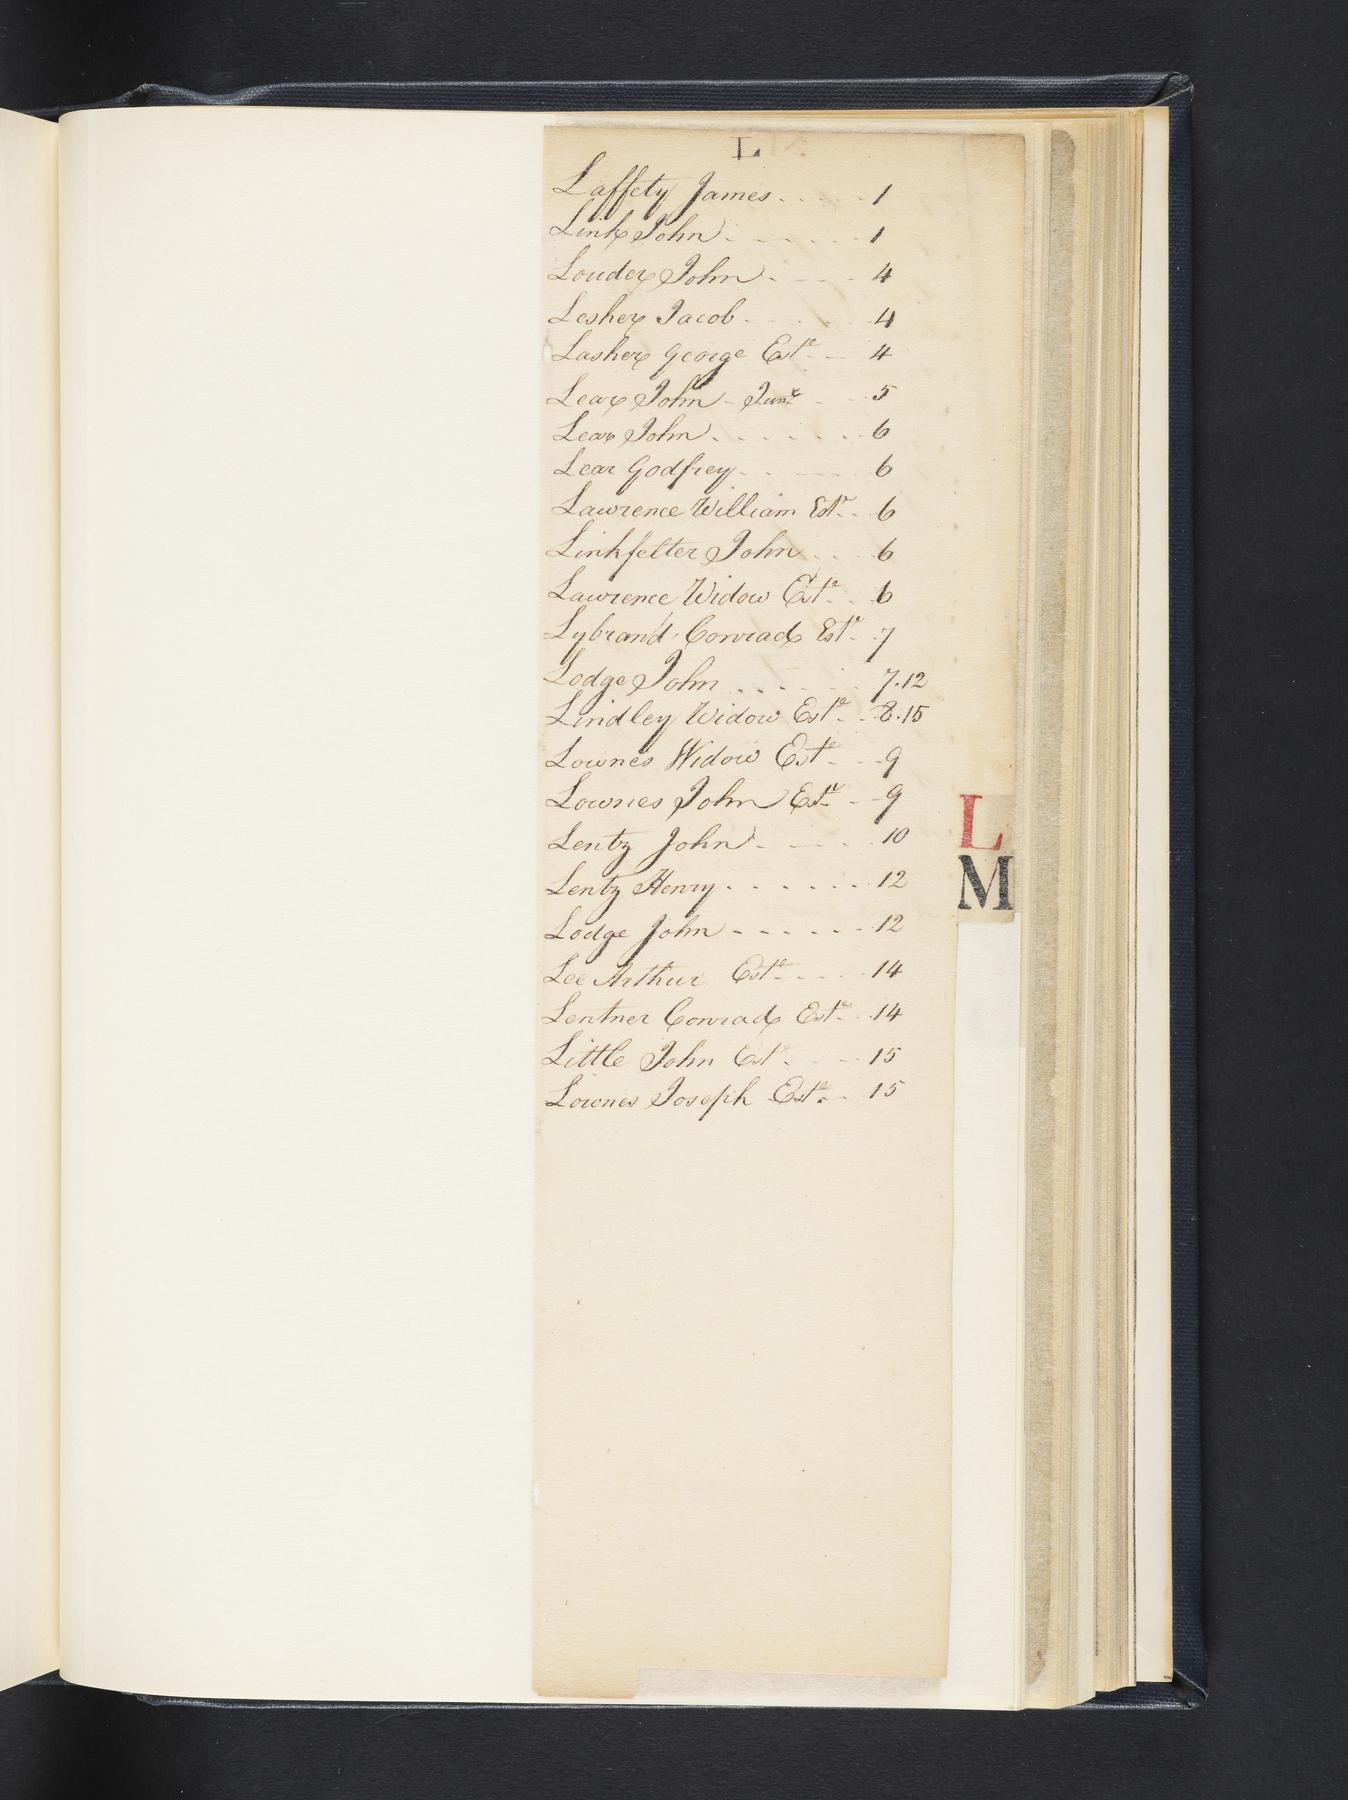 L
Laffety James . . . . . 1
Link John . . . . . 1
Louder John . . . . 4
Lesher Jacob . . . . 4
Lasher George Este . . 4
Lear John - Junr . . 5
Lear John . . . . . . 6
Lear Godfrey . . . . 6
Lawrence William Este . . 6
Linkfelter John . . . 6
Lawrence Widow Este . . 6
Lybrand Conrad Este . . 7
Lodge John . . . . . 7.12
Lindley Widow Este . . 8.15
Lownes Widow Este . . . 9
Lownes John Este . . 9
Lentz John . . . . 10
Lentz Henry . . . . . . 12
Lodge John . . . . . . 12
Lee Arthur Este . . . . 14
Lentner Conrad Este . . 14
Little John Este . . . 15
Lownes Joseph Este . . 15
L
M